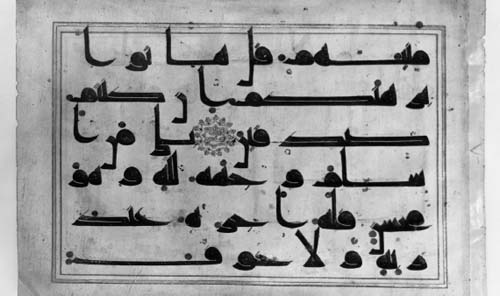 نيهم قل هاتوا
برهنكم ان كنتم
صدقين بلى من ا
سلم وجهه لله وهو
محسن فله اجره عند
ربه ولا خوف